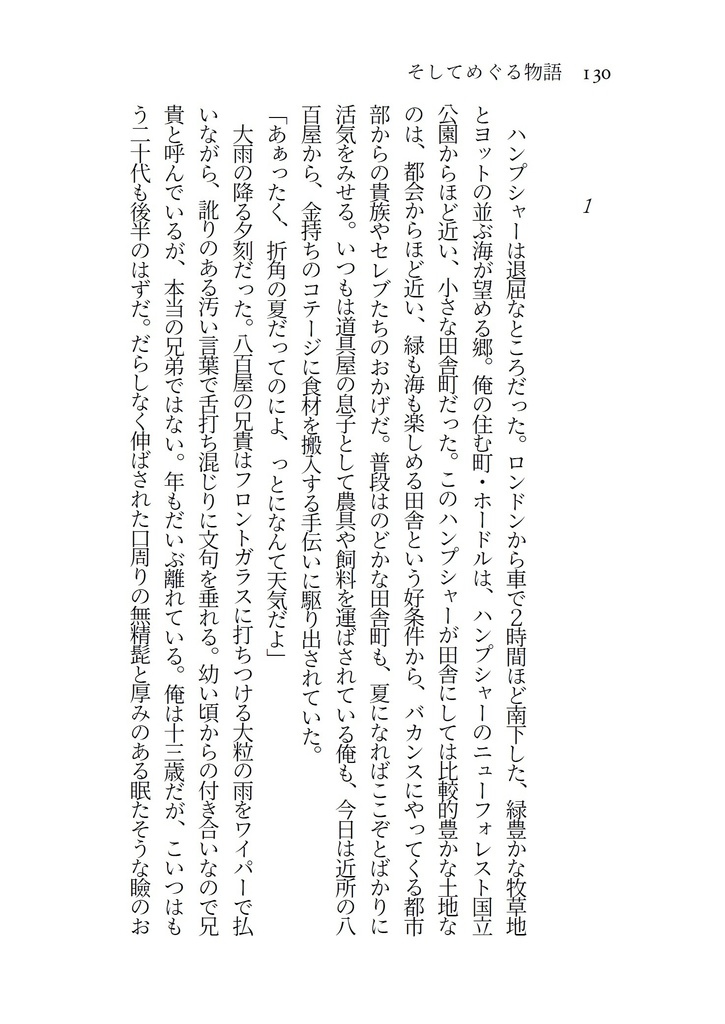 そしてめぐる物語　130
1
ハンプシャーは退屈なところだった。ロンドンから車で2時間ほど南下した、緑豊かな牧草地
とヨットの並ぶ海が望める郷。俺の住む町・ホードルは、ハンプシャーのニューフォレスト国立
公園からほど近い、小さな田舎町だった。このハンプシャーが田舎にしては比較的豊かな土地な
のは、都会からほど近い、緑も海も楽しめる田舎という好条件から、バカンスにやってくる都市
部からの貴族やセレブたちのおかげだ。普段はのどかな田舎町も、夏になればここぞとばかりに
活気をみせる。いつもは道具屋の息子として農具や飼料を運ばされている俺も、今日は近所の八
百屋から、金持ちのコテージに食材を搬入する手伝いに駆り出されていた。
「あぁったく、折角の夏だってのによ、っとになんて天気だよ」
大雨の降る夕刻だった。八百屋の兄貴はフロントガラスに打ちつける大粒の雨をワイパーで払
いながら、訛りのある汚い言葉で舌打ち混じりに文句を垂れる。幼い頃からの付き合いなので兄
貴と呼んでいるが、本当の兄弟ではない。年もだいぶ離れている。俺は十三歳だが、こいつはも
う二十代も後半のはずだ。だらしなく伸ばされた口周りの無精髭と厚みのある眠たそうな瞼のお